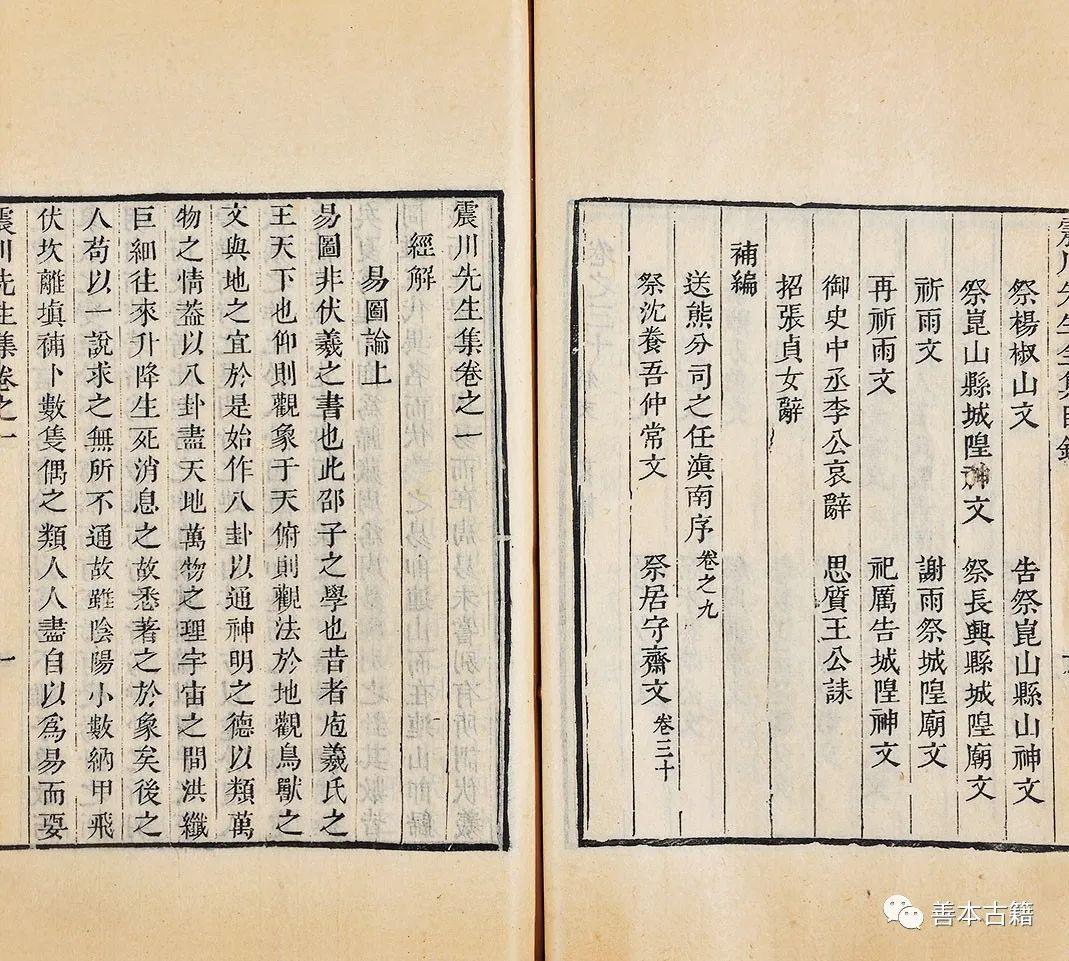 祭楊椒山文 告祭崑山縣山神文
祭崑山縣城隍神文 祭長興縣城隍廟文
祈雨文 謝雨祭城隍廟文
再祈雨文 祀厲告城隍神文
御史中丞李公哀辭 思質王公誄
招張貞女辭
補編
送熊分司之任滇南序 卷之九
祭沈養吾仲常文 祭居守齋文 卷三十
震川先生集卷之一
經解
易圖論上
易圖非伏羲之書也此邵子之學也昔者庖羲氏之
王天下也仰則觀象于天俯則觀法於地觀鳥獸之
文與地之宜於是始作八卦以通神明之德以類萬
物之情蓋以八卦盡天地萬物之理宇宙之間洪纖
巨細往來升降生死消息之故悉著之於象矣後之
人苟以一說求之無所不通故雖陰陽小數納甲飛
伏坎離塡補卜數隻偶之類人人盡自以爲易而要
震川先生集卷之一 一
善本古籍